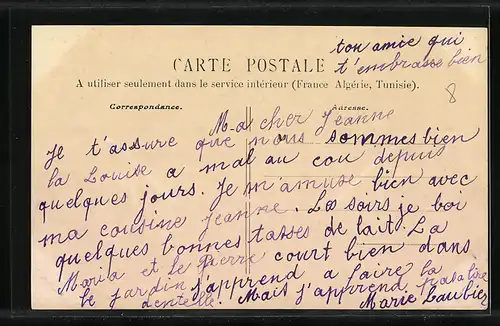 ton amie qui
t'embrasse bien
CARTE POSTALE
A utiliser seulement dans le service intérieur (France Algérie, Tunisie).
Correspondance.
Adresse.
8
Ma cher Jeanne
Je t'assure que nous sommes bien
la Louise a mal au cou depuis
quelques jours. Je m'amuse bien avec
ma cousine Jeanne. Les soirs je boi
quelques bonnes tasses de lait. La
Maria et le Pierre court bien dans
le jardin j'apprend a faire la
dentelle. Mais j'apprend pasable
Marie